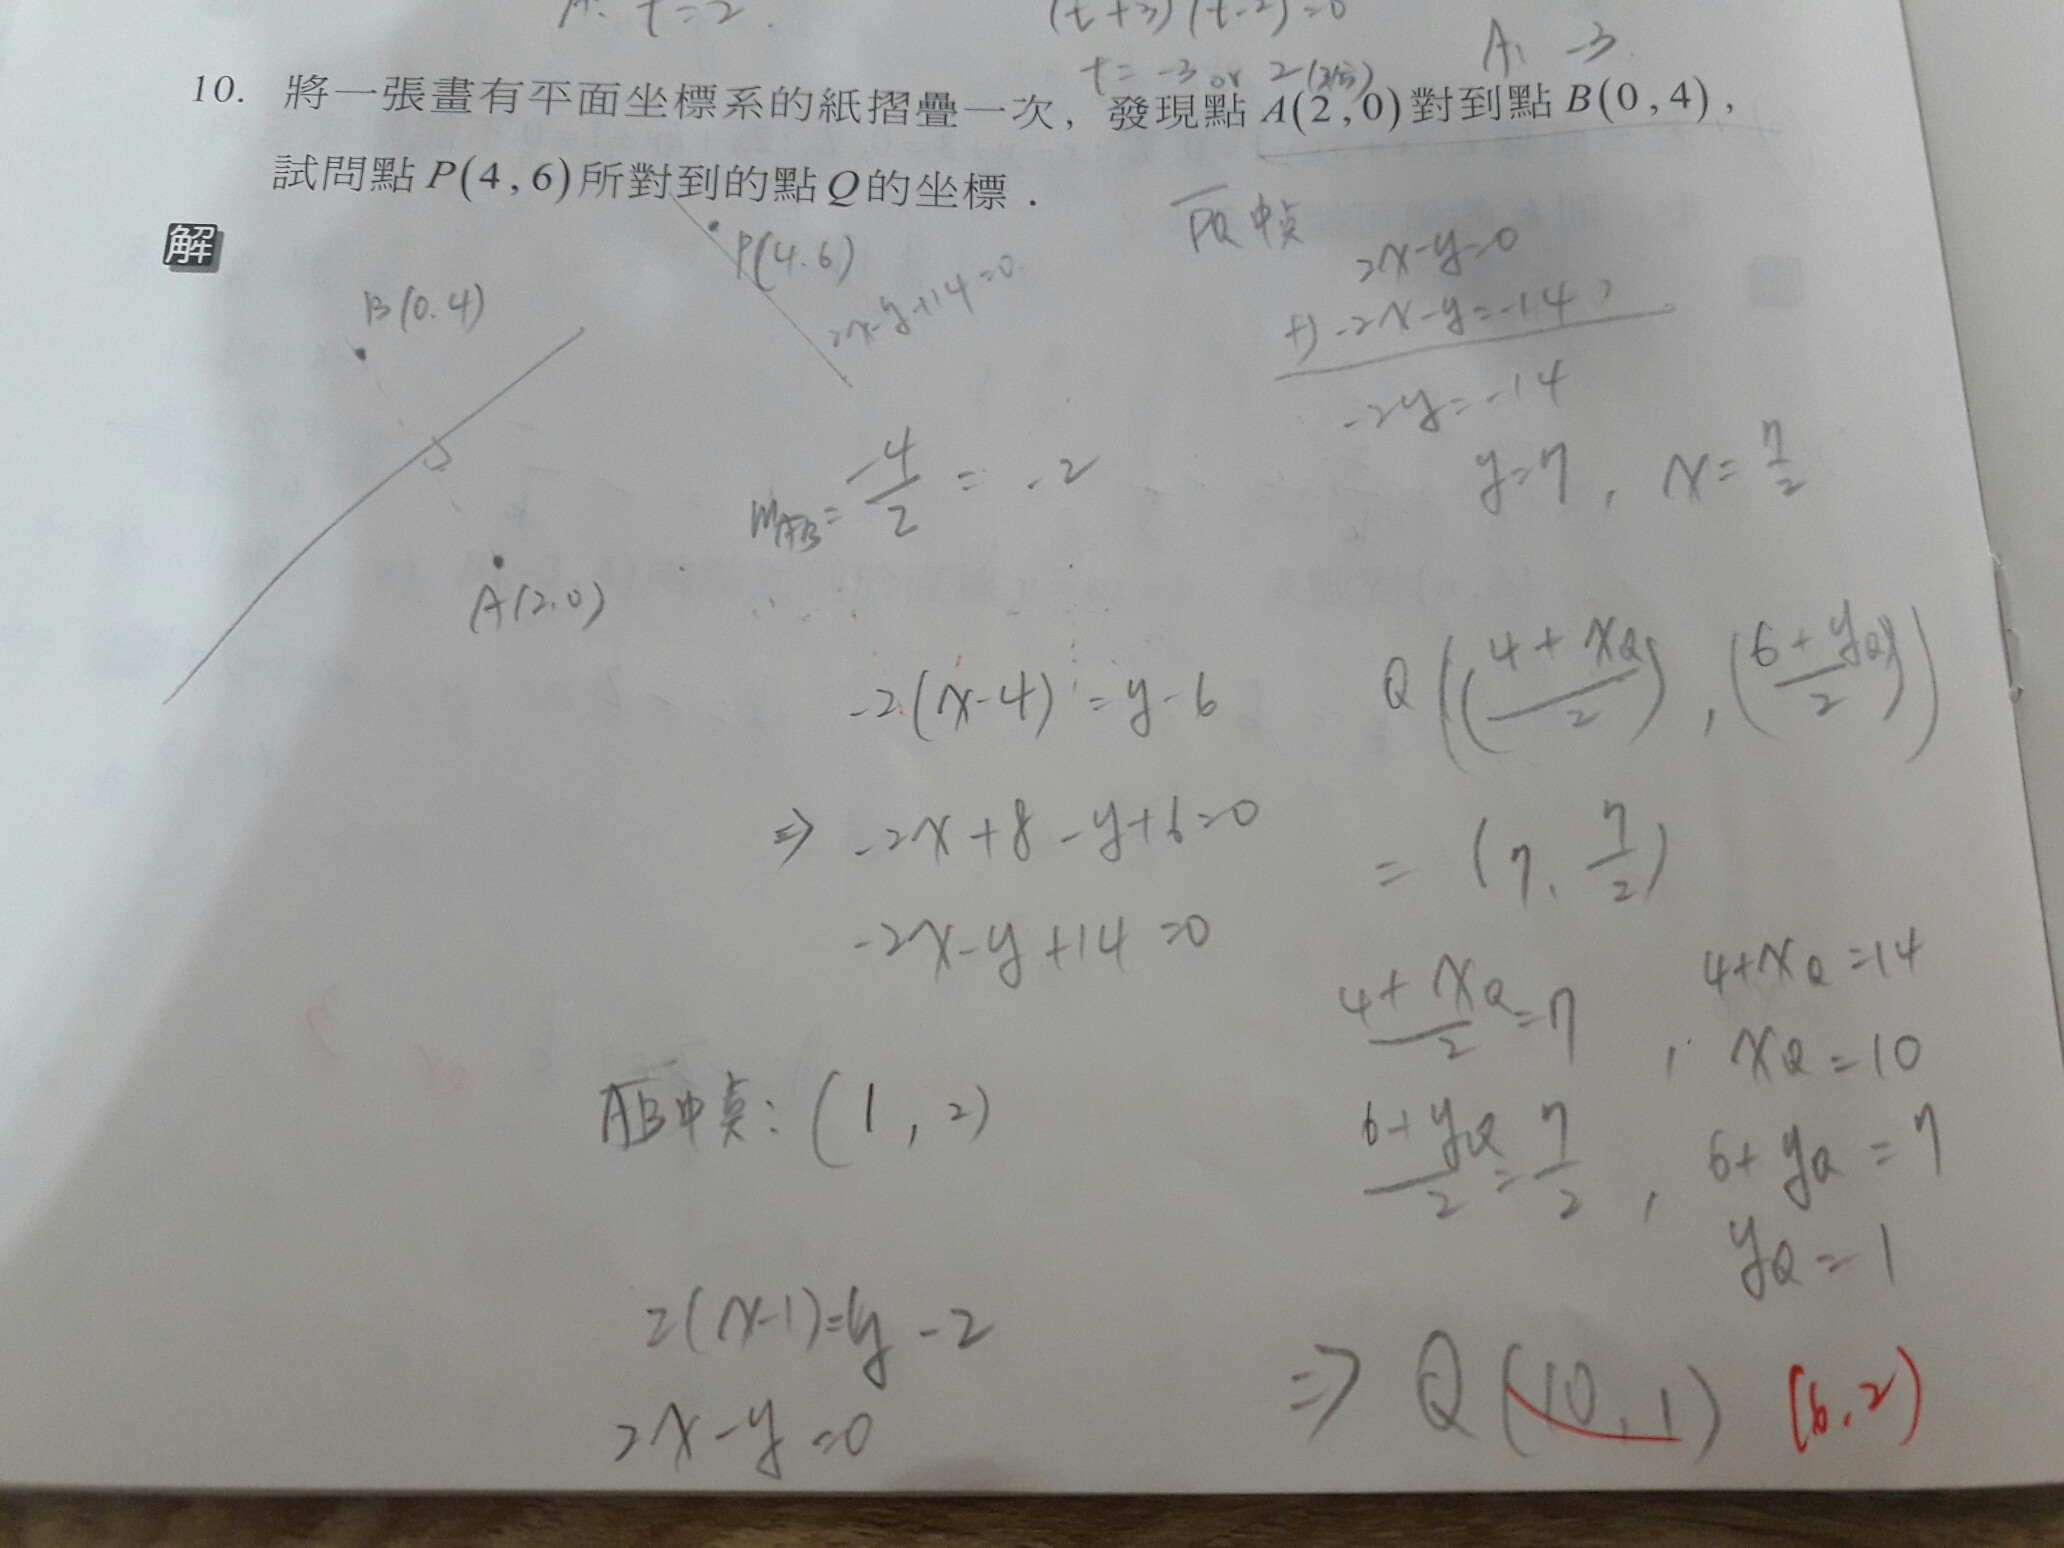 A: t=2.
(t+3)(t-2)=0
t=-3 or 2
A: -3.
10. 將一張畫有平面坐標系的紙摺疊一次，發現點A(2,0)對到點B(0,4)，
試問點P(4,6)所對到的點Q的坐標．
解
P(4.6)
2x-y+14=0
B(0.4)
A(2.0)
mAB=-4/2=-2
-2(x-4)=y-6
⇒ -2x+8-y+6=0
-2x-y+14=0
AB中點:(1,2)
2(x-1)=y-2
2x-y=0
PQ中点
2x-y=0
+) -2x-y=-14
-2y=-14
y=7, x=7/2
Q((4+xQ/2),(6+yQ/2))
=(7,7/2)
4+xQ/2=7, 4+xQ=14
xQ=10
6+yQ/2=7/2, 6+yQ=7
yQ=1
⇒ Q(10,1) (6,2)